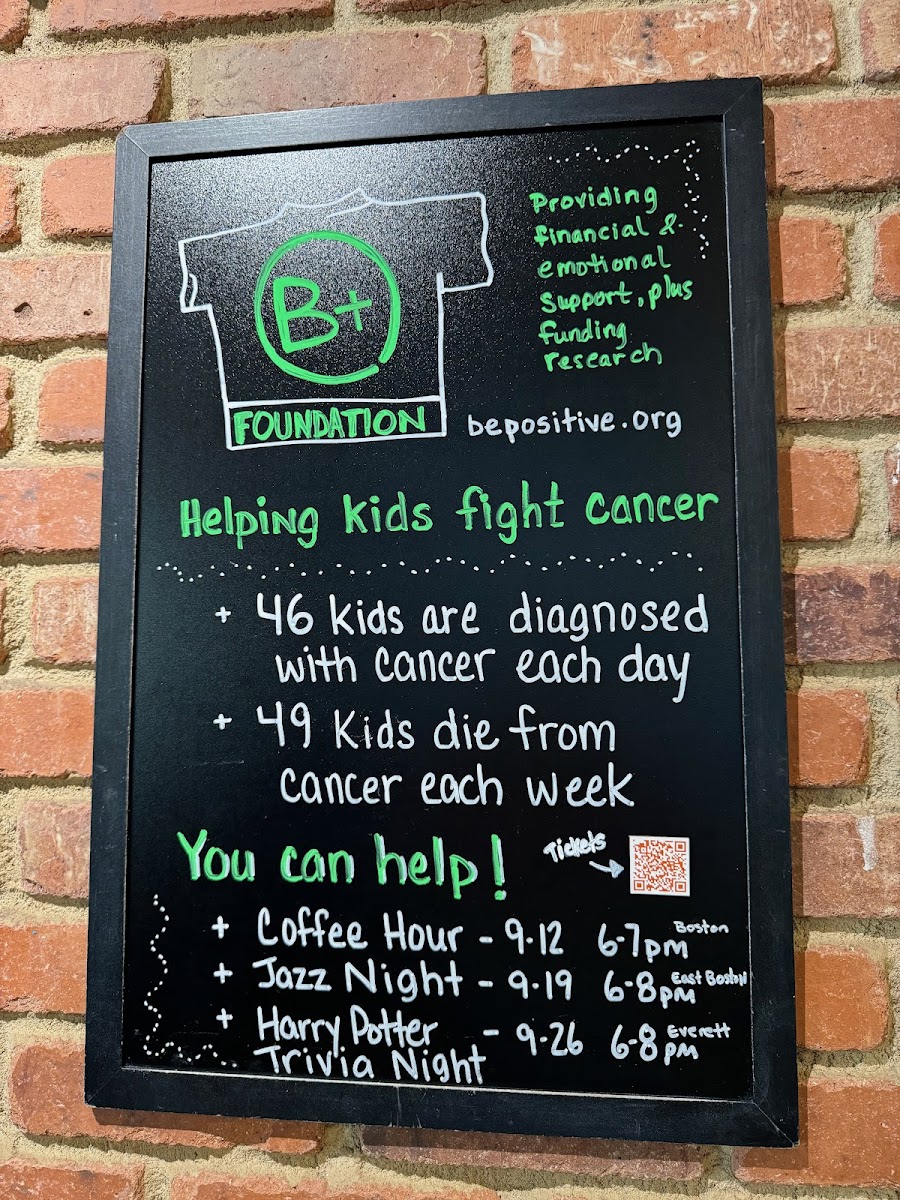 B+
FOUNDATION
Providing
financial &
emotional
support, plus
funding
research
bepositive.org
Helping kids fight cancer
+ 46 kids are diagnosed
with cancer each day
+ 49 kids die from
cancer each week
You can help!
Tickets
+ Coffee Hour - 9.12 6-7pm Boston
+ Jazz Night - 9.19 6-8pm East Boston
+ Harry Potter - 9.26 6-8 pm Everett
Trivia Night